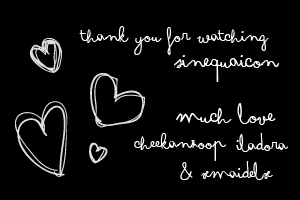 thank you for watching
sinequaicon
much love
cheekansoop iladora
& xmaidelx